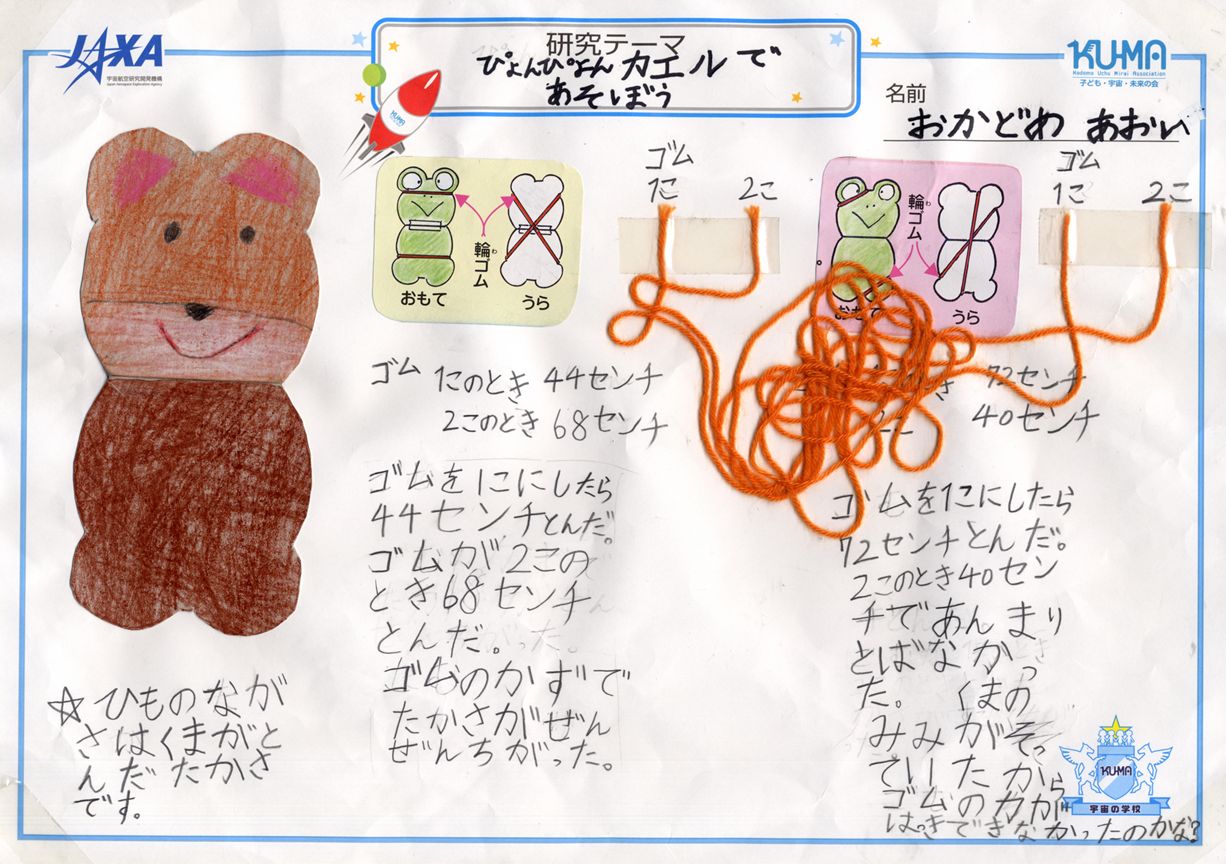 JAXA
宇宙航空研究開発機構
Japan Aerospace Exploration Agency
研究テーマ
ぴょんぴょんカエルで
あそぼう
KUMA
Kodomo Uchu Mirai Association
子ども・宇宙・未来の会
名前
おかどめ あおい
KUMA
輪ゴム
わ
おもて
うら
ゴム
1こ 2こ
輪ゴム
わ
おもて
うら
ゴム
1こ 2こ
ゴム 1このとき 44センチ
2このとき 68センチ
ゴムを1こにしたら
44センチとんだ。
ゴムが2この
とき68センチ
とんだ。
ゴムのかずで
たかさがぜん
ぜんちがった。
き 72センチ
2こ 40センチ
ゴムを1こにしたら
72センチとんだ。
2このとき40セン
チであんまり
とばなかっ
た。くまの
みみがそっ
ていたから
ゴムの力が
はっきできなかったのかな?
☆ひものなが
さはくまがと
んだたかさ
です。
KU-MA
宇宙の学校